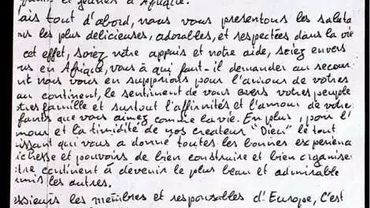 et jeunes d'Afrique.
ais tout d'abord, nous vous présentons les saluta
les plus délicieuses, adorables, et respectées dans la vie
cet effet, soiez notre appuis et notre aide, soiez envers
en Afrique, vous à qui faut-il demander au secour
nous vous en supplions pour l'amour de votre
continent, le sentiment de vous envers votre peuple
famille et surtout l'affinités et l'amour de votre
fants que vous aimez comme la vie. En plus, pour l'
mour et la timidité de vos créateur "Dieu" le tout
issant qui vous a donné toutes les bonnes expérience
ichesse et pouvoirs de bien construire et bien organiser
tre continent à devenir le plus beau et admirable
les autres.
essieurs les membres et responsables d'Europe, C'est